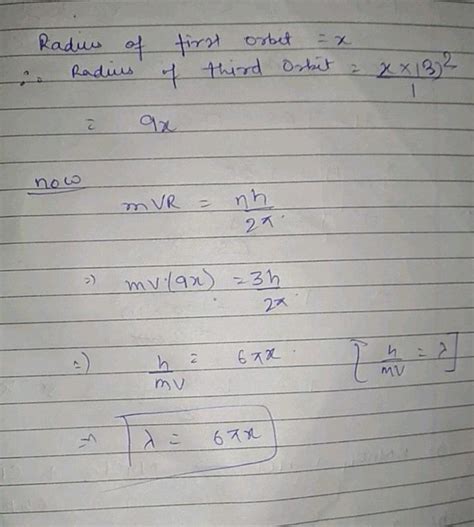 Radius of first orbit = x
∴ Radius of third orbit = x × (3)² / 1
= 9x
now
mVR = nh / 2π.
⇒ mv.(9x) = 3h / 2π.
⇒) h / mv = 6πx. [h / mv = λ]
⇒ λ = 6πx